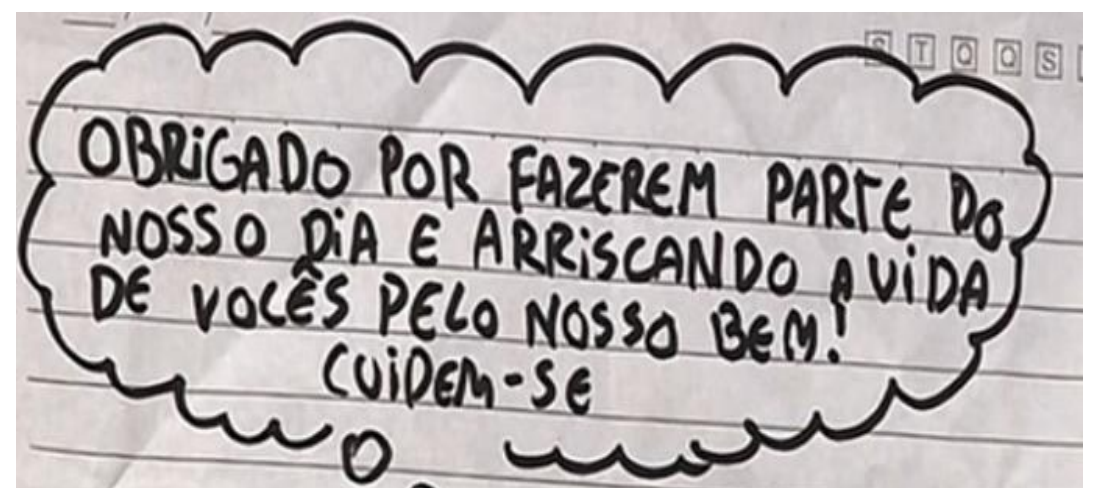 S T Q Q S
OBRiGADO POR FAZEREM PARTE DO
NOSSO DiA E ARRiSCANDO A ViDA
DE VOCÊS PELO NOSSO BEM!
CUiDEM-SE